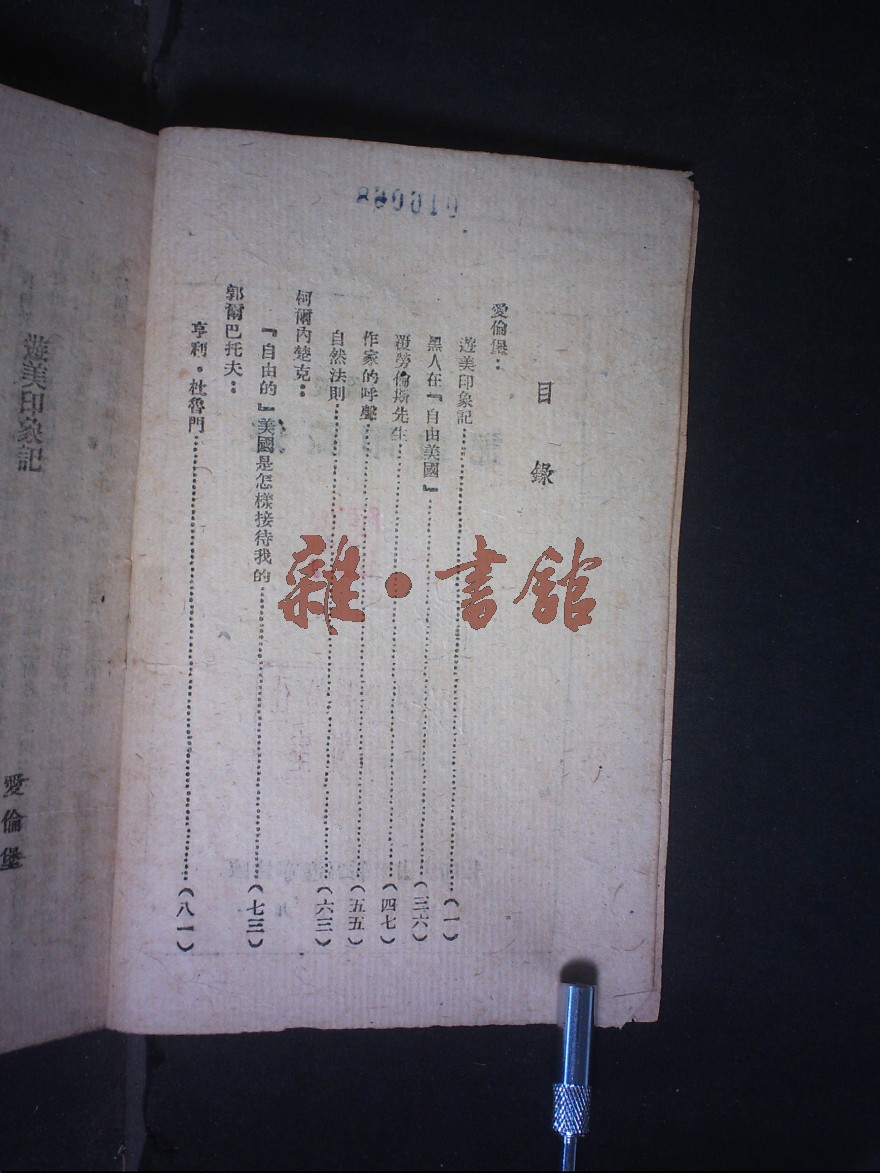 目錄
愛倫堡：
遊美印象記……（一）
黑人在『自由美國』……（三六）
覆勞倫斯先生……（四七）
作家的呼聲……（五五）
自然法則……（六三）
柯爾內楚克：
『自由的』美國是怎樣接待我的……（七三）
郭爾巴托夫：
亨利·杜魯門……（八一）
遊美印象記
愛倫堡
雜·書館